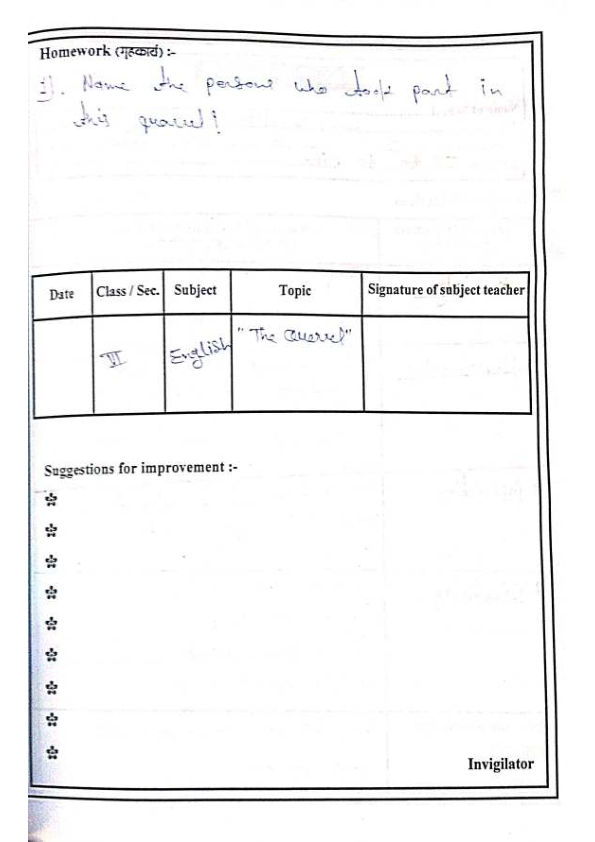 Homework (गृहकार्य) :-
1). Name the persons who took part in
this quarrel!
Date Class / Sec. Subject Topic Signature of subject teacher
VI English "The Querrel"
Suggestions for improvement :-
Invigilator